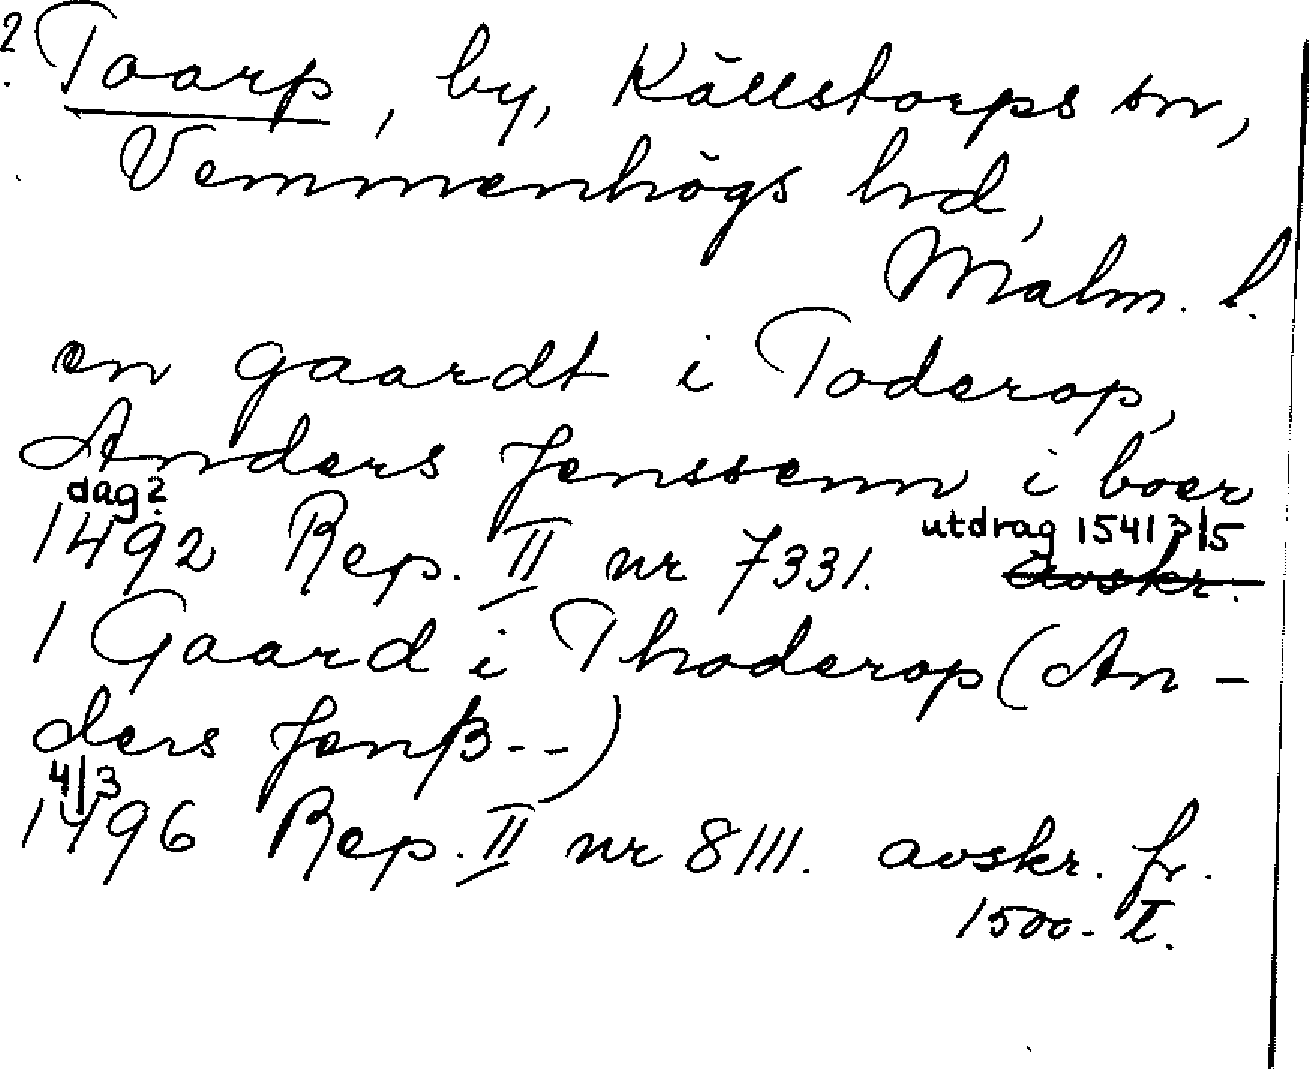 2. Toarp, by, Källstorps sn,
Vemmenhögs hd,
Malm. l.
en gaardt i Toderop,
Anders Jenssenn i boer
dag?
1492 Rep. II nr 7331. utdrag 1541 3/5
avskr.
1 Gaard i Thoderop (An-
ders Jenß--)
4/3
1496 Rep. II nr 8111. avskr. fr.
1500-t.